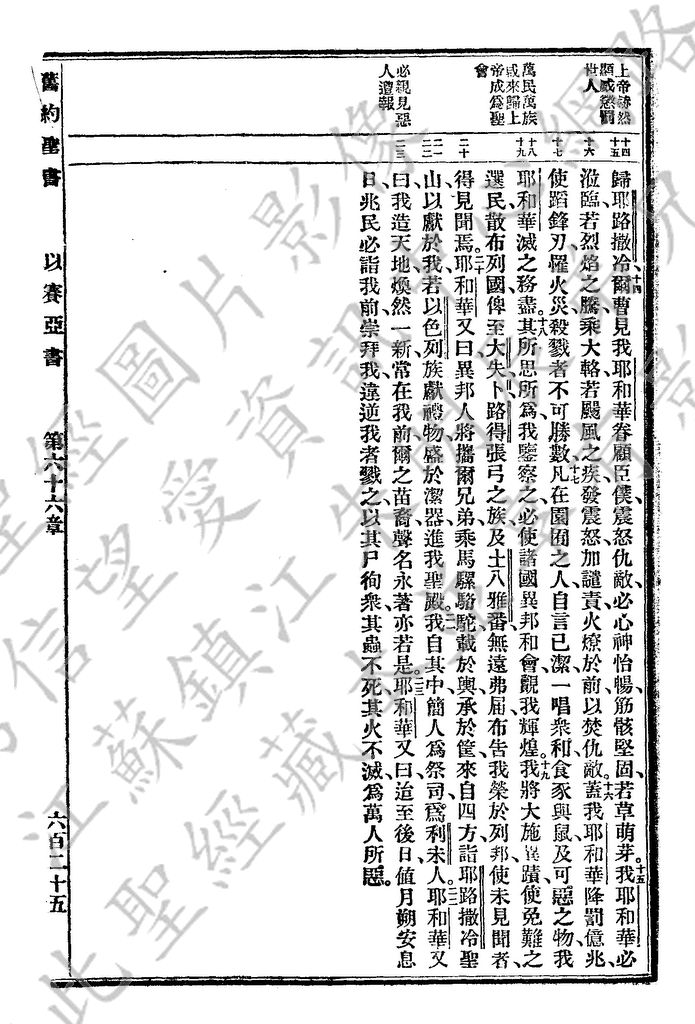 上帝赫然
顯威懲罰
世人
萬民萬族
咸來歸上
帝成爲聖
會
必親見惡
人遭報
十四
十五
十六
十七
十八
十九
二十
二一
二二
二三
歸耶路撒冷、十四爾曹見我耶和華眷顧臣僕、震怒仇敵、必心神怡暢、筋骸堅固、若草萌芽。十五我耶和華必
涖臨、若烈焰之騰、乘大輅、若颶風之疾、發震怒、加譴責、火燎於前、以焚仇敵、十六蓋我耶和華降罰億兆、
使蹈鋒刃、罹火災、殺戮者不可勝數、十七凡在園囿之人、自言已潔、一唱衆和、食豕與鼠、及可惡之物、我
耶和華滅之務盡、十八其所思所爲、我鑒察之、必使諸國異邦和會、覩我輝煌、十九我將大施異蹟、使免難之
選民、散布列國、俾至大失、卜路、得張弓之族、及土八、雅番、無遠弗屆、布告我榮於列邦、使未見聞者、
得見聞焉。二十耶和華又曰、異邦人將攜爾兄弟、乘馬騾駱駝、載於輿、承於筐、來自四方、詣耶路撒冷聖
山、以獻於我、若以色列族獻禮物、盛於潔器、進我聖殿。二一我自其中簡人爲祭司、爲利未人。二二耶和華又
曰、我造天地、煥然一新、常在我前、爾之苗裔聲名永著、亦若是。二三耶和華又曰、迨至後日、値月朔安息
日、兆民必詣我前、崇拜我、違逆我者戮之、以其尸徇衆、其蟲不死、其火不滅、爲萬人所惡。
舊約聖書 以賽亞書 第六十六章 六百二十五